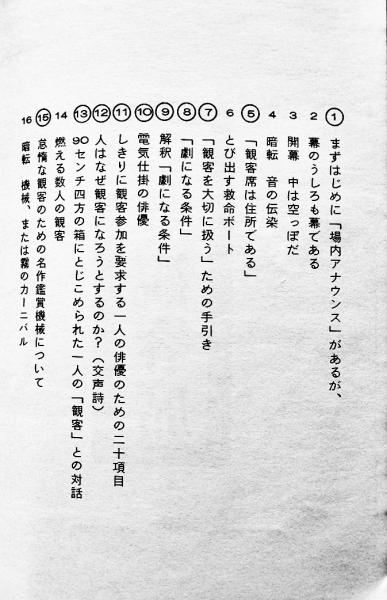 ① まずはじめに「場内アナウンス」があるが、
2 幕のうしろも幕である
3 開幕 中は空っぽだ
4 暗転 音の伝染
⑤ 「観客席は住所である」
6 とび出す救命ボート
⑦ 「観客を大切に扱う」ための手引き
⑧ 「劇になる条件」
⑨ 解釈「劇になる条件」
⑩ 電気仕掛の俳優
⑪ しきりに観客参加を要求する一人の俳優のための二十項目
⑫ 人はなぜ観客になろうとするのか？（交声詩）
⑬ 90センチ四方の箱にとじこめられた一人の「観客」との対話
14 燃える数人の観客
⑮ 怠惰な観客のための名作鑑賞機械について
16 暗転、機械、または霧のカーニバル